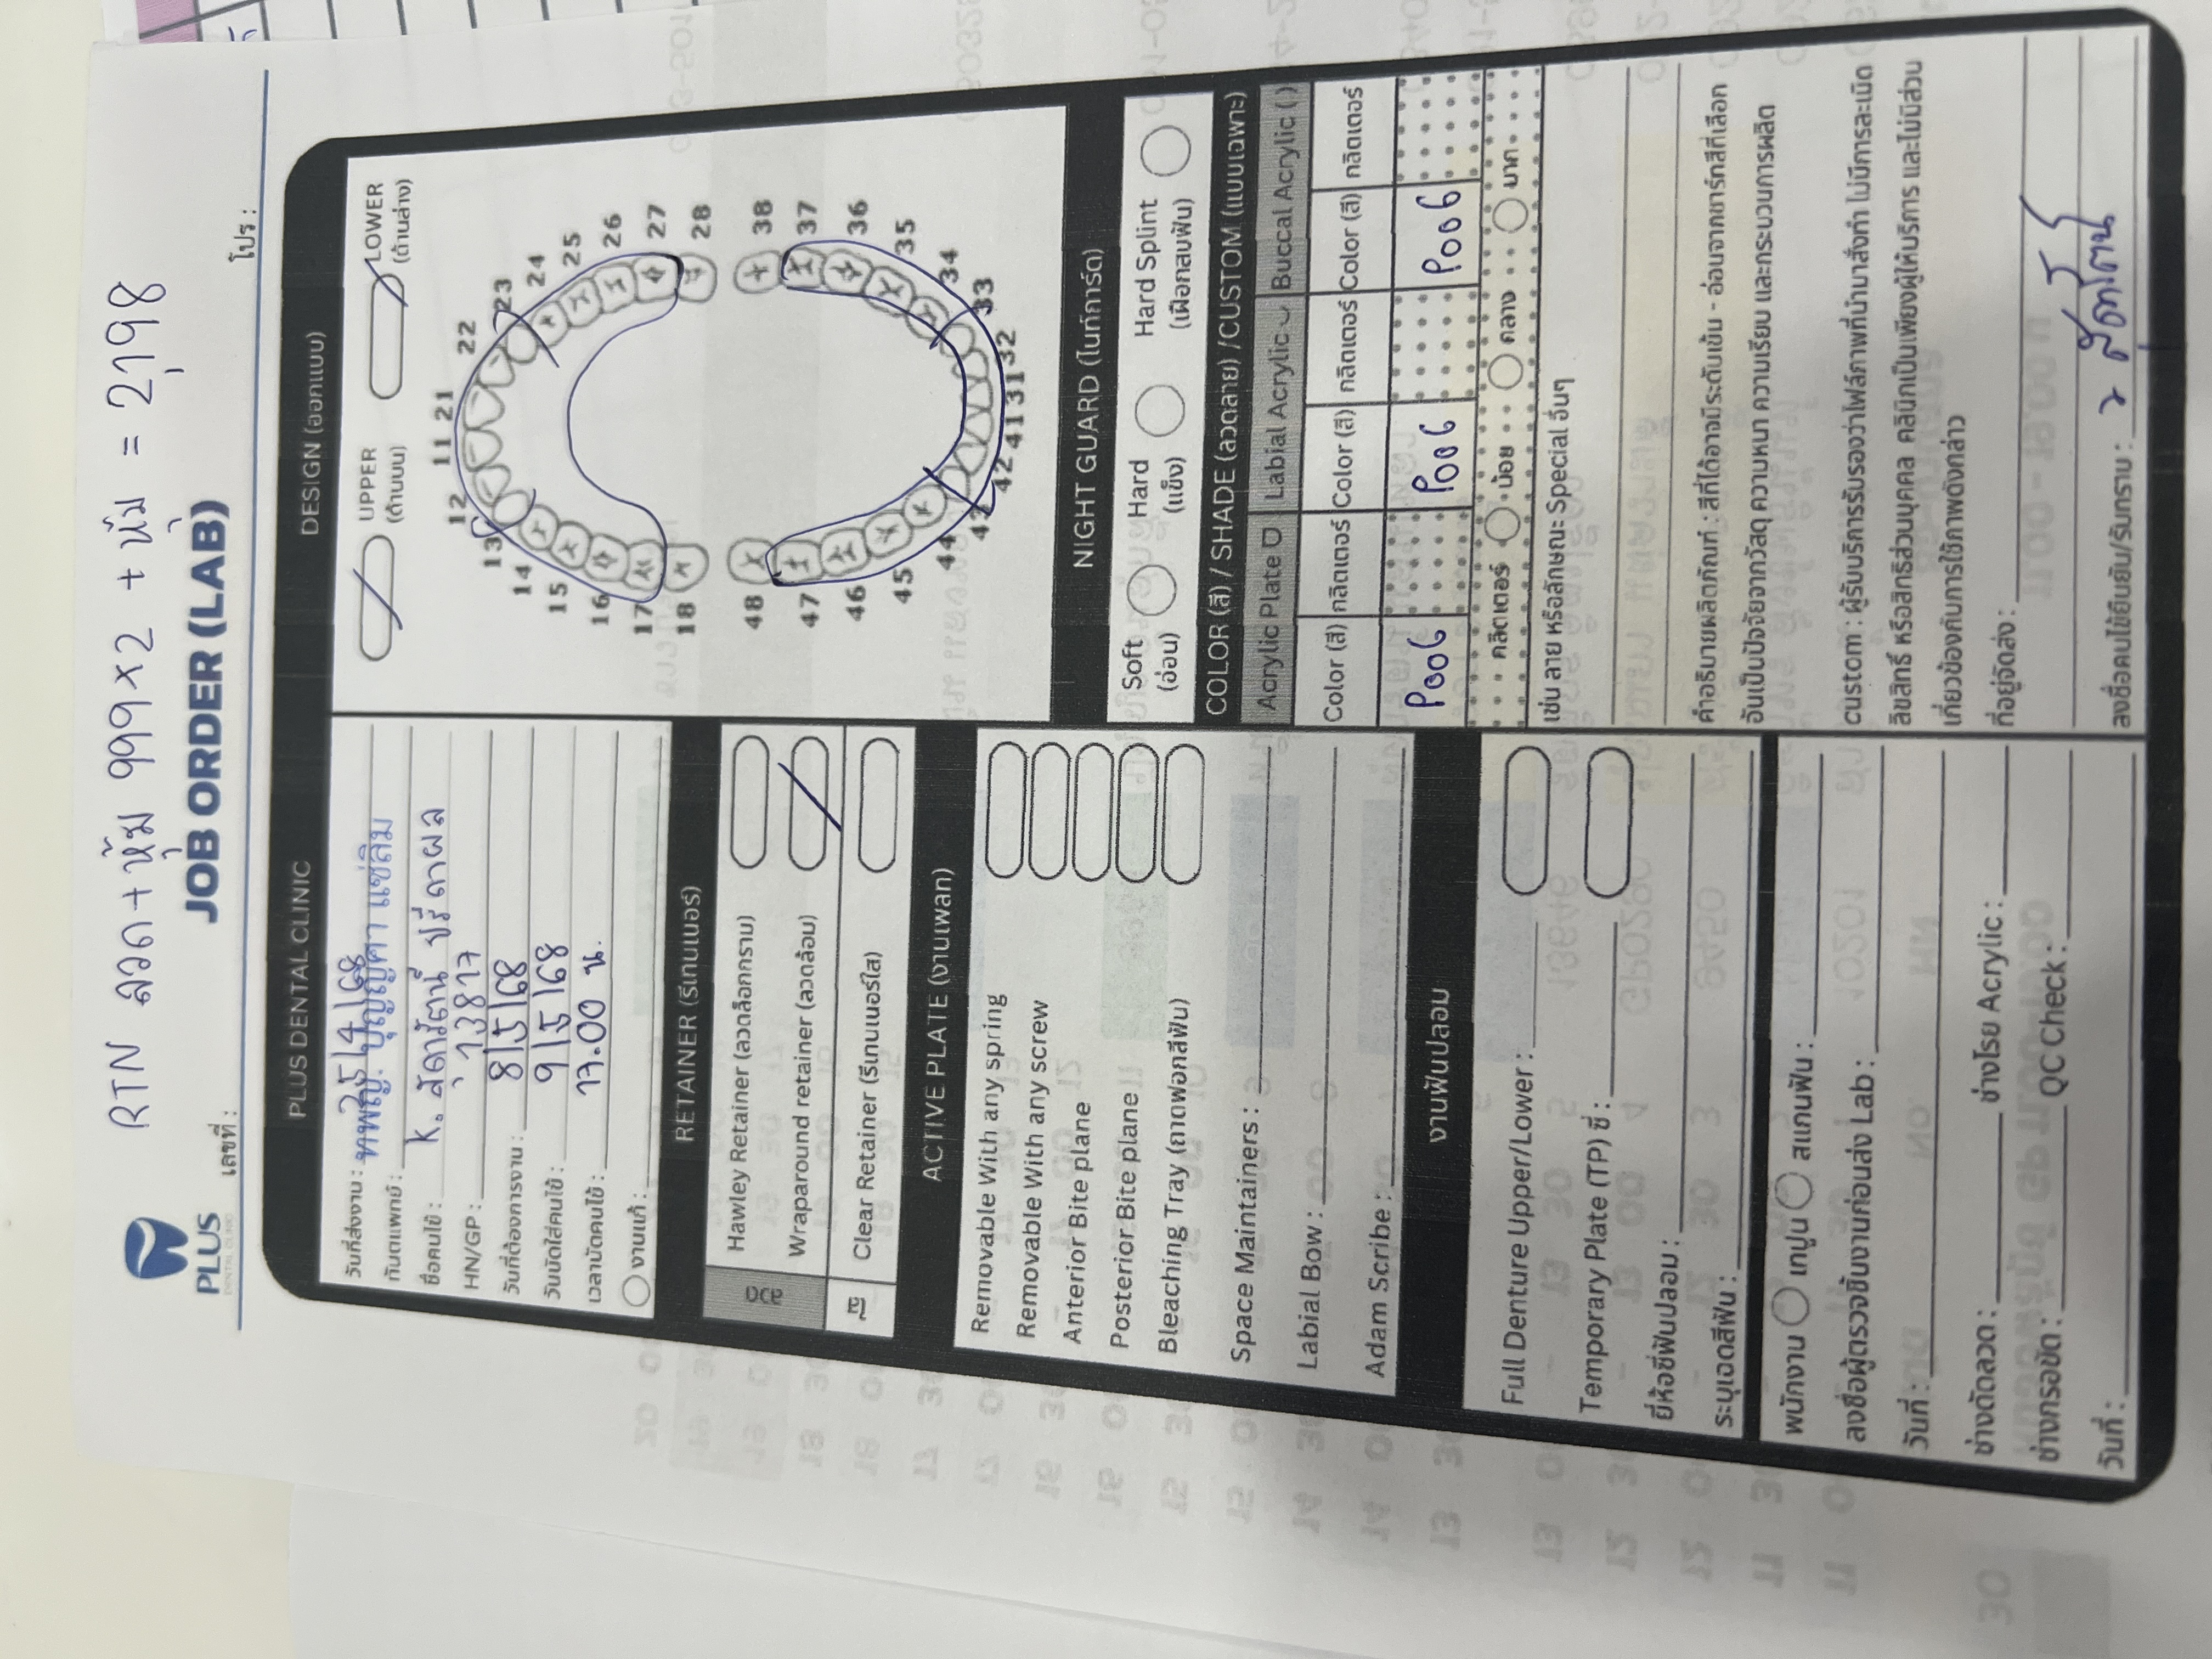 RTN ลวด+หุ้ม 999x2 + หุ้ม = 2,198
PLUS
DENTAL CLINIC
JOB ORDER (LAB)
เลขที่ :
โปร :
PLUS DENTAL CLINIC
วันที่ส่งงาน : 25/4/68
ทันตแพทย์ : ทพญ. ปุญญิศา แซ่ลิ้ม
ชื่อคนไข้ : K. สุดารัตน์ ปรีดาผล
HN/GP : 13817
วันที่ต้องการงาน : 8/5/68
วันนัดใส่คนไข้ : 9/5/68
เวลานัดคนไข้ : 17.00 น.
งานแก้ :
RETAINER (รีเทนเนอร์)
ลวด
Hawley Retainer (ลวดล็อกกราม)
Wraparound retainer (ลวดล้อม)
ใส
Clear Retainer (รีเทนเนอร์ใส)
ACTIVE PLATE (งานเพลท)
Removable With any spring
Removable With any screw
Anterior Bite plane
Posterior Bite plane
Bleaching Tray (ถาดฟอกสีฟัน)
Space Maintainers :
Labial Bow :
Adam Scribe :
งานฟันปลอม
Full Denture Upper/Lower :
Temporary Plate (TP) ซี่ :
ยี่ห้อซี่ฟันปลอม :
ระบุเฉดสีฟัน :
พนักงาน เทปูน สแกนฟัน :
ลงชื่อผู้ตรวจชิ้นงานก่อนส่ง Lab :
วันที่ :
ช่างดัดลวด : ช่างโรย Acrylic :
ช่างกรอขัด : QC Check :
วันที่ :
DESIGN (ออกแบบ)
UPPER
(ด้านบน)
LOWER
(ด้านล่าง)
11 21
12 22
13 23
14 24
15 25
16 26
17 27
18 28
48 38
47 37
46 36
45 35
44 34
43 33
42 41 31 32
NIGHT GUARD (ไนท์การ์ด)
Soft
(อ่อน)
Hard
(แข็ง)
Hard Splint
(เฝือกสบฟัน)
COLOR (สี) / SHADE (ลวดลาย) /CUSTOM (แบบเฉพาะ)
Acrylic Plate Labial Acrylic Buccal Acrylic ( )
Color (สี) กลิตเตอร์ Color (สี) กลิตเตอร์ Color (สี) กลิตเตอร์
P006 P006 P006
กลิตเตอร์ น้อย กลาง มาก
เช่น ลาย หรือลักษณะ Special อื่นๆ
คำอธิบายผลิตภัณฑ์ : สีที่ได้อาจมีระดับเข้ม - อ่อนจากชาร์ทสีที่เลือก
อันเป็นปัจจัยจากวัสดุ ความหนา ความเรียบ และกระบวนการผลิต
custom : ผู้รับบริการรับรองว่าไฟล์ภาพที่นำมาสั่งทำ ไม่มีการละเมิด
ลิขสิทธิ์ หรือสิทธิส่วนบุคคล คลินิกเป็นเพียงผู้ให้บริการ และไม่มีส่วน
เกี่ยวข้องกับการใช้ภาพดังกล่าว
ที่อยู่จัดส่ง :
ลงชื่อคนไข้ยืนยัน/รับทราบ :